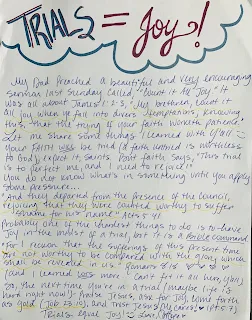 TRIALS = Joy!
My Dad preached a beautiful and very encouraging
sermon last Sunday called "Count it All Joy". It
was all about James 1:2-3, "My brethren, count it
all joy when ye fall into divers temptations, knowing
this, that the trying of your faith worketh patience".
Let me share some things I learned with y'all:
Your FAITH WILL be tried (a faith untried is worthless
to God), expect it, saints. Don't faith says, "This trial
is to perfect me, and I need to
You do not know what's in something until you apply
some pressure...
"And they departed from the presence of the council,
rejoicing that they were counted worthy to suffer
shame for his name" Acts 5:41
Probably one of the hardest things to do is to have
Joy in the midst of a trial, but it is a Bible command
"For I reckon that the sufferings of this present time
are not worthy to be compared with the glory which
shall be revealed in us" Romans 8:18
(and I learned lots more! Can't fit it all here, y'all)
So, the next time you're in a trial (maybe life is
hard right now) praise Jesus, ask for Joy, come forth
as gold (Job 23:10), and trust Jesus! He cares!
Trials equal Joy!